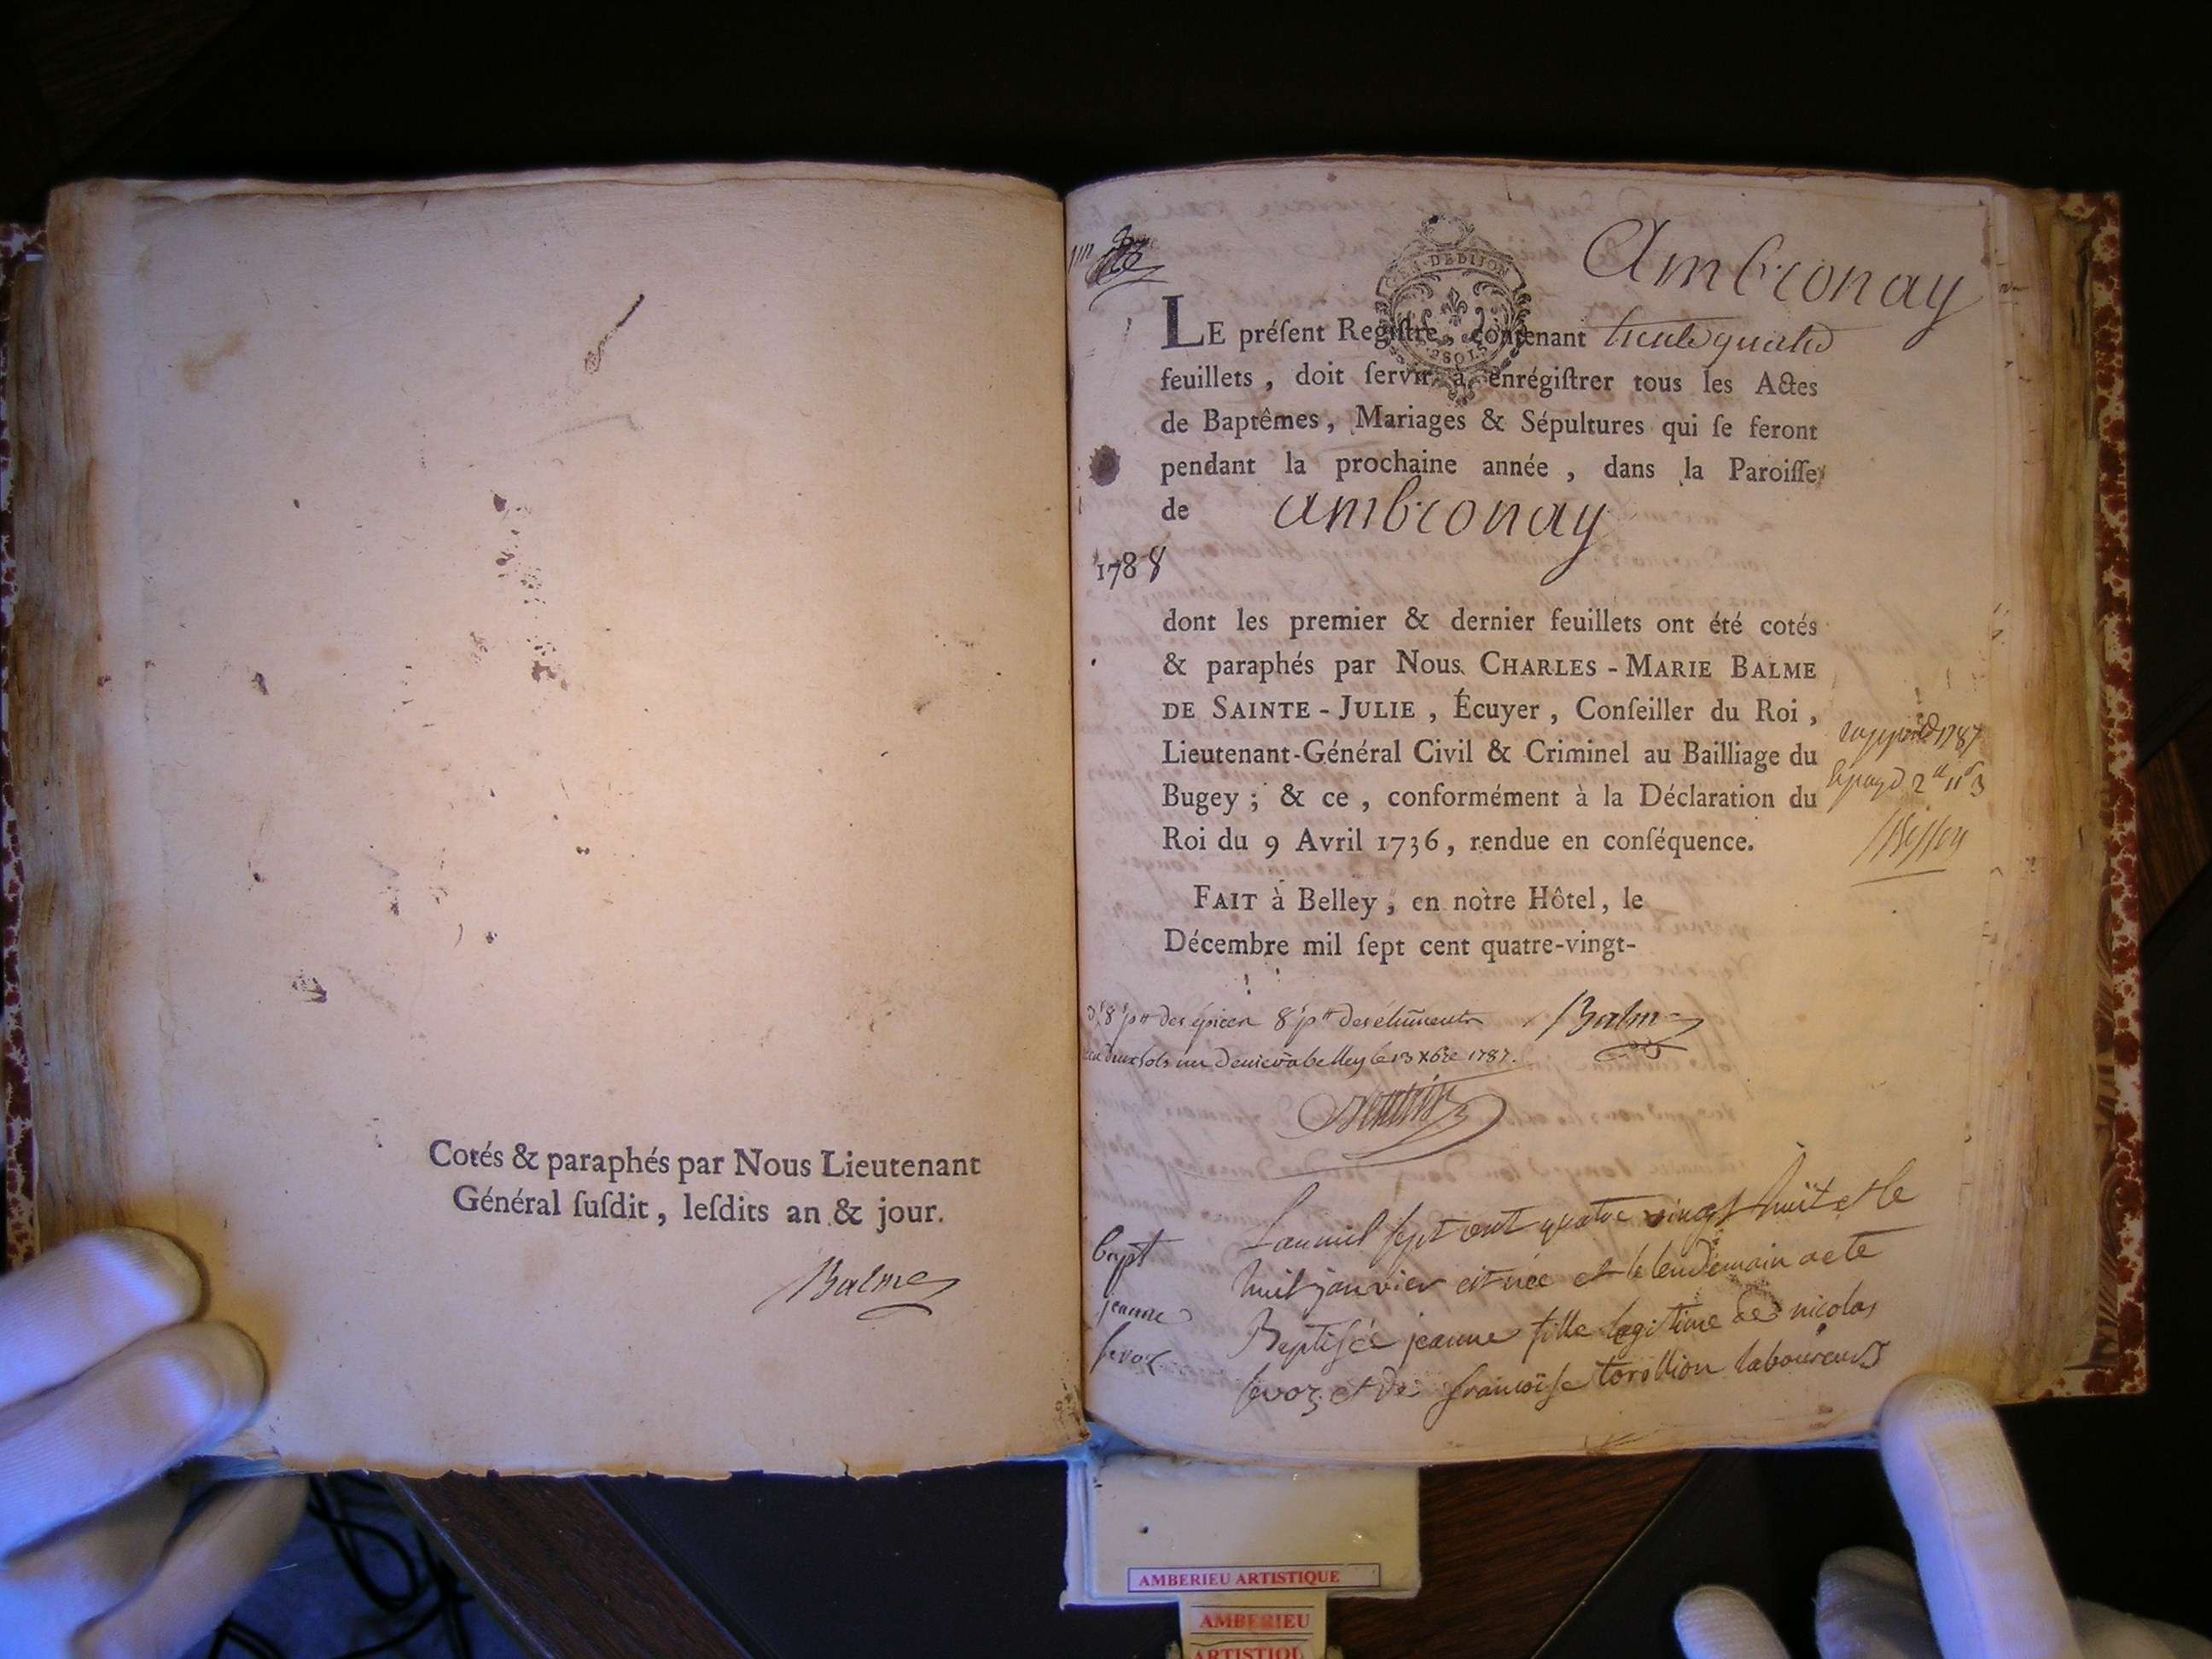 Cotés & paraphés par Nous Lieutenant
Général ſuſdit, leſdits an & jour.
Balme
Ambronay
GEN. DE DIJON
2 SOLS
LE préſent Regiſtre, contenant trente quatre
feuillets, doit ſervir à enrégiſtrer tous les Actes
de Baptêmes, Mariages & Sépultures qui ſe feront
pendant la prochaine année, dans la Paroiſſe
de ambronay
1788
dont les premier & dernier feuillets ont été cotés
& paraphés par Nous CHARLES-MARIE BALME
DE SAINTE-JULIE, Écuyer, Conſeiller du Roi,
Lieutenant-Général Civil & Criminel au Bailliage du
Bugey; & ce, conformément à la Déclaration du
Roi du 9 Avril 1736, rendue en conſéquence.
1787
FAIT à Belley, en notre Hôtel, le
Décembre mil ſept cent quatre-vingt-
Balme
deux sols un denier a belley le 13 Xbre 1787.
bapt
jeanne
Lan mil sept cent quatre vingt huit et le
huit janvier est née et le lendemain a ete
Baptisée jeanne fille legitime de nicolas
et de francoise torollion laboureurs
AMBERIEU ARTISTIQUE
AMBERIEU